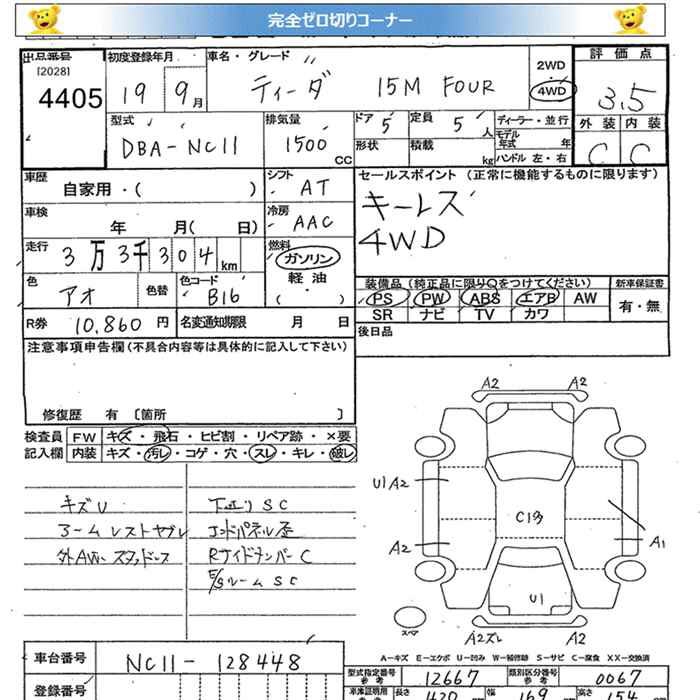 完全ゼロ切りコーナー
出品番号 初度登録年月 車名・グレード 2WD 評価点
[2028]
4405 19 9月 ティーダ 15M FOUR 4WD 3.5
型式 排気量 ドア 5 定員 5 人 ディーラー・並行 外装 内装
DBA-NC11 1500 CC 形状 積載 kg モデル年式 年 C C
ハンドル 左・右
車歴 シフト セールスポイント (正常に機能するものに限ります)
自家用・( ) AT キーレス
車検 冷房 4WD
年 月( 日) AAC
走行 燃料
3万3千304km ガソリン
色 色替 色コード 軽油 装備品 (純正品に限り○をつけてください) 新車保証書
アオ B16 (・) PS PW ABS エアB AW 有・無
R券 10,860円 名変通知期限 月 日 SR ナビ TV カワ
注意事項申告欄(不具合内容等は具体的に記入して下さい) 後日品
修復歴 有 [箇所 ]
検査員 FW キズ・飛石・ヒビ割・リペア跡・×要
記入欄 内装 キズ・汚レ・コゲ・穴・スレ・キレ・破レ
キズU 下廻りSC
アームレストヤブレ コンドパネル歪
外AW-スタッドレス RサイドメンバーC
E/Sルーム SC
A2 A2
U1 A2
C1多
A2 A1
U1
スペア A2ズレ A2
A-キズ E-エクボ U-凹み W-補修跡 S-サビ C-腐食 XX-交換済
車台番号 NC11-128448 型式指定番号 参考 12667 類別区分番号 参考 0067
登録番号 車庫証明用 長さ 420 幅 169 高さ 154